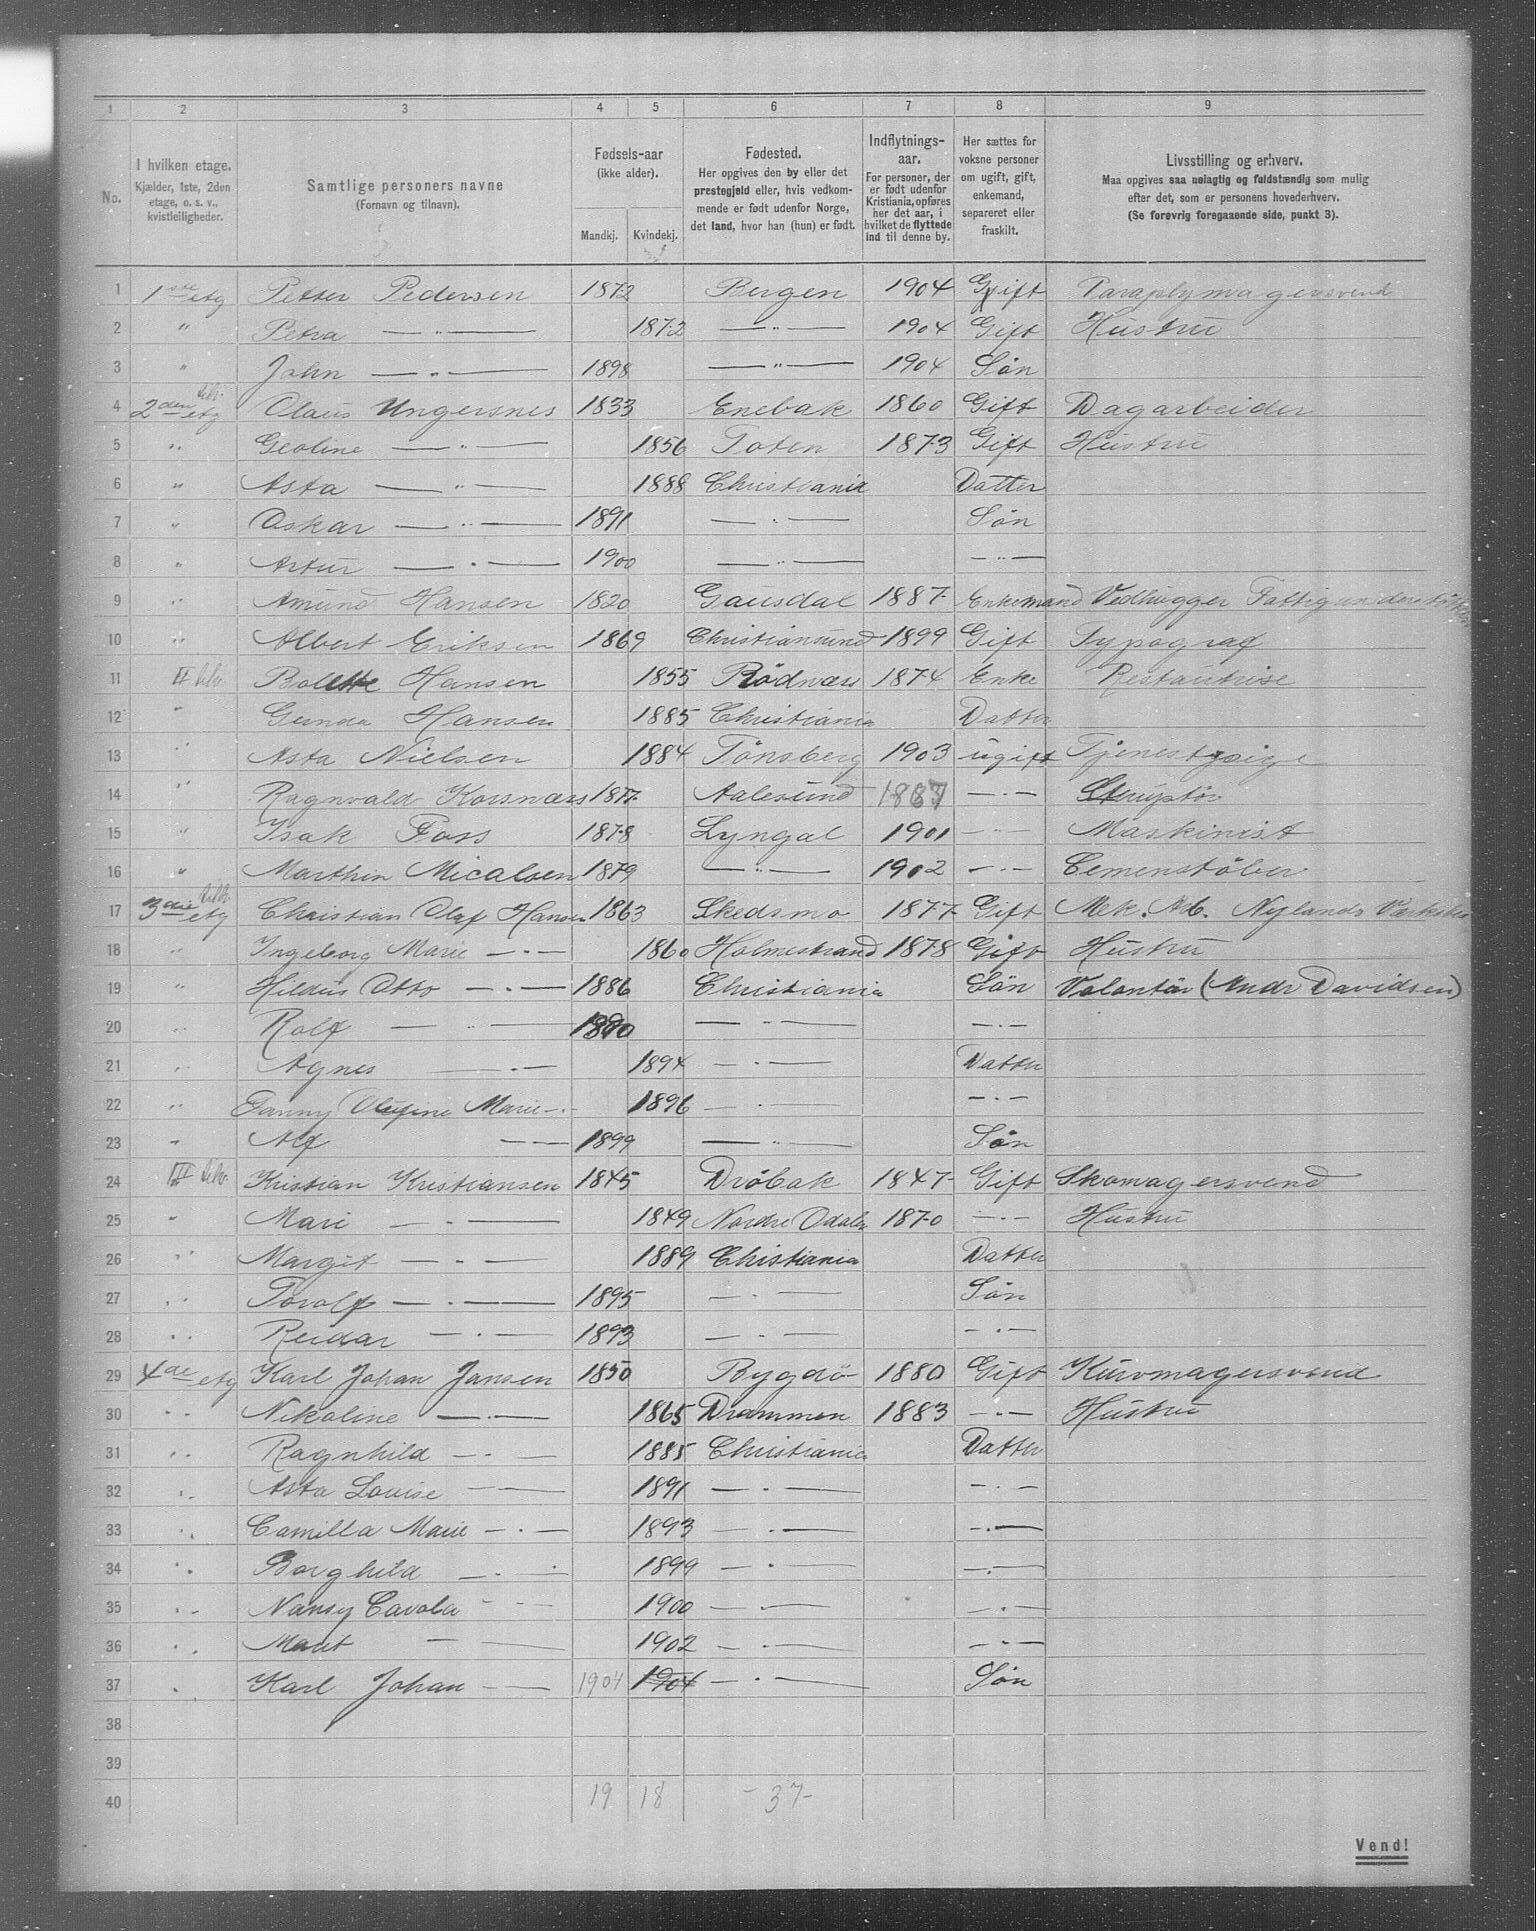 1 2 3 4 5 6 7 8 9
No.
I hvilken etage. Kjælder, 1ste, 2den etage, o. s. v., kvistleiligheder.
Samtlige personers navne (Fornavn og tilnavn).
Fødsels-aar (ikke alder). Mandkj. Kvindekj.
Fødested. Her opgives den by eller det prestegjeld eller, hvis vedkommende er født udenfor Norge, det land, hvor han (hun) er født.
Indflytnings-aar. For personer, der er født udenfor Kristiania, opføres her det aar, i hvilket de flyttede ind til denne by.
Her sættes for voksne personer om ugift, gift, enkemand, separeret eller fraskilt.
Livsstilling og erhverv. Maa opgives saa nøiagtig og fuldstændig som mulig efter det, som er personens hovederhverv. (Se forøvrig foregaaende side, punkt 3).
1 1ste etg Petter Pedersen 1872 Bergen 1904 Gift Paraplymagersvend
2 " Petra — " — 1872 — " — 1904 Gift Hustru
3 " John — " — 1898 — " — 1904 Søn
4 2den etg Olaus Ungersnes 1833 Enebak 1860 Gift Dagarbeider
5 " Geoline — " — 1856 Toten 1873 Gift Hustru
6 " Asta — " — 1888 Christiania Datter
7 " Oskar — " — 1891 — " — Søn
8 " Artur — " — 1900 — " — — " —
9 " Amund Hansen 1820 Gausdal 1887 Enkemand Vedhugger
10 " Albert Eriksen 1869 Christiansund 1899 Gift Typograf
11 II Bolette Hansen 1855 Rödnæs 1874 Enke Restautrise
12 " Gunda Hansen 1885 Christiania Datter
13 " Asta Nielsen 1884 Tönsberg 1903 ugift Tjenestpige
14 " Ragnvald Korsnæs 1877 Aalesund 1887 — " —
15 " Isak Foss 1878 Lyngdal 1901 — " — Maskinist
16 " Marthin Micalsen 1879 — " — 1902 — " — Cemenstöber
17 3die etg Christian Olaf Hansen 1863 Skedsmo 1877 Gift Mek. Arb. Nylands Værksted
18 " Ingeborg Marie — " — 1860 Holmestrand 1878 Gift Hustru
19 " Hildus Otto — " — 1886 Christiania Søn Volontör (Andr Davidsen)
20 " Rolf — " — 1890 — " — — " —
21 " Agnes — " — 1894 — " — Datter
22 " Fanny Olufine Marie — " — 1896 — " — — " —
23 " Alf — " — 1899 — " — Søn
24 III Kristian Kristiansen 1845 Dröbak 1847 Gift Skomagersvend
25 " Mari — " — 1849 Nordre Odalen 1870 — " — Hustru
26 " Margit — " — 1889 Christiania Datter
27 " Torolf — " — 1895 — " — Søn
28 " Reidar — " — 1893 — " — — " —
29 4de etg Karl Johan Jansen 1850 Bygdö 1880 Gift Kurvmagersvend
30 " Nikoline — " — 1865 Drammen 1883 — " — Hustru
31 " Ragnhild — " — 1885 Christiania Datter
32 " Asta Louise — " — 1891 — " — — " —
33 " Camilla Marie — " — 1893 — " — — " —
34 " Borghild — " — 1899 — " — — " —
35 " Nansy — " — 1900 — " — — " —
36 " — " — 1902 — " — — " —
37 " Karl Johan — " — 1904 1904 — " — Søn
38
39
40 19 18 - 37 -
Vend!